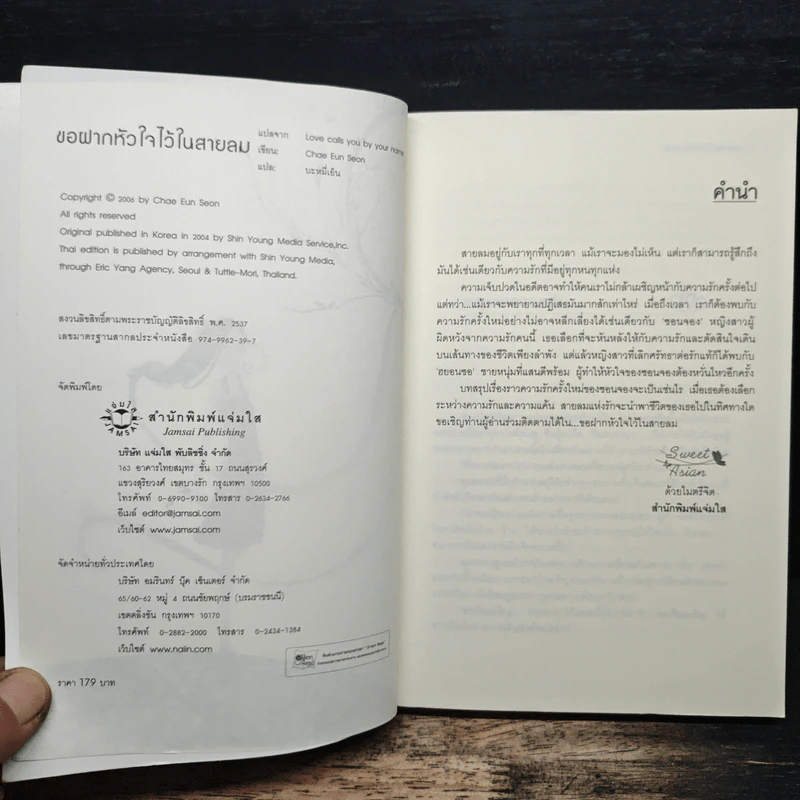 ขอฝากหัวใจไว้ในสายลม
แปลจาก Love calls you by your name
เขียน: Chae Eun Seon
แปล: บะหมี่เย็น
Copyright © 2006 by Chae Eun Seon
All rights reserved
Original published in Korea in 2004 by Shin Young Media Service,Inc.
Thai edition is published by arrangement with Shin Young Media,
through Eric Yang Agency, Seoul & Tuttle-Mori, Thailand.
สงวนลิขสิทธิ์ตามพระราชบัญญัติลิขสิทธิ์ พ.ศ. 2537
เลขมาตรฐานสากลประจำหนังสือ 974-9962-39-7
จัดพิมพ์โดย
แจ่มใส
JAMSAI
สำนักพิมพ์แจ่มใส
Jamsai Publishing
บริษัท แจ่มใส พับลิชชิ่ง จำกัด
163 อาคารไทยสมุทร ชั้น 17 ถนนสุรวงศ์
แขวงสุริยวงศ์ เขตบางรัก กรุงเทพฯ 10500
โทรศัพท์ 0-6990-9100 โทรสาร 0-2634-2766
อีเมล์ editor@jamsai.com
เว็บไซต์ www.jamsai.com
จัดจำหน่ายทั่วประเทศโดย
บริษัท อมรินทร์ บุ๊ค เซ็นเตอร์ จำกัด
65/60-62 หมู่ 4 ถนนชัยพฤกษ์ (บรมราชชนนี)
เขตตลิ่งชัน กรุงเทพฯ 10170
โทรศัพท์ 0-2882-2000 โทรสาร 0-2434-1384
เว็บไซต์ www.naiin.com
ราคา 179 บาท
คำนำ
สายลมอยู่กับเราทุกที่ทุกเวลา แม้เราจะมองไม่เห็น แต่เราก็สามารถรู้สึกถึง
มันได้เช่นเดียวกับความรักที่มีอยู่ทุกหนทุกแห่ง
ความเจ็บปวดในอดีตอาจทำให้คนเราไม่กล้าเผชิญหน้ากับความรักครั้งต่อไป
แต่ทว่า...แม้เราจะพยายามปฏิเสธมันมากสักเท่าไหร่ เมื่อถึงเวลา เราก็ต้องพบกับ
ความรักครั้งใหม่อย่างไม่อาจหลีกเลี่ยงได้เช่นเดียวกับ 'ซอนจอง' หญิงสาวผู้
ผิดหวังจากความรักคนนี้ เธอเลือกที่จะหันหลังให้กับความรักและตัดสินใจเดิน
บนเส้นทางของชีวิตเพียงลำพัง แต่แล้วหญิงสาวที่เลิกศรัทธาต่อรักแท้ก็ได้พบกับ
'ฮยอนซอ' ชายหนุ่มที่แสนดีพร้อม ผู้ทำให้หัวใจของซอนจองต้องหวั่นไหวอีกครั้ง
บทสรุปเรื่องราวความรักครั้งใหม่ของซอนจองจะเป็นเช่นไร เมื่อเธอต้องเลือก
ระหว่างความรักและความแค้น สายลมแห่งรักจะนำพาชีวิตของเธอไปในทิศทางใด
ขอเชิญท่านผู้อ่านร่วมติดตามได้ใน...ขอฝากหัวใจไว้ในสายลม
Sweet
Asian
ด้วยไมตรีจิต
สำนักพิมพ์แจ่มใส